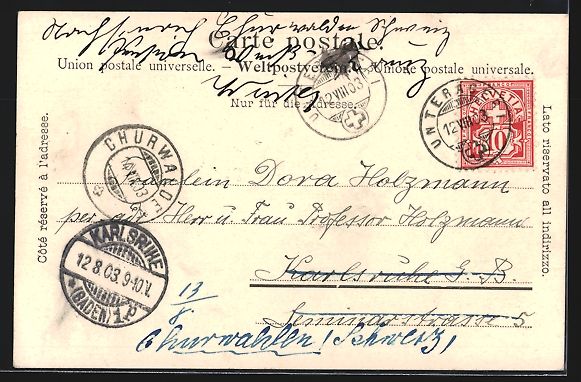 Nachgesandt Churwalden Schweiz
Pension
Carte postale.
Union postale universelle. — Weltpostverein. — Unione postale universale.
Nur für die Adresse.
Côté réservé à l'adresse.
Lato riservato all indirizzo.
12 VIII 03
UNTERÄ
12 VIII 03
HELVETIA
10
CHURWALDEN
VIII 03
Fräulein Dora Holzmann
per adr Herr u Frau Professor Holzmann
Karlsruhe i. B.
Seminarstrasse 5
KARLSRUHE
12.8.03.9-10V.
*(BADEN)1.p
13
8
Churwahlen (Schweiz)